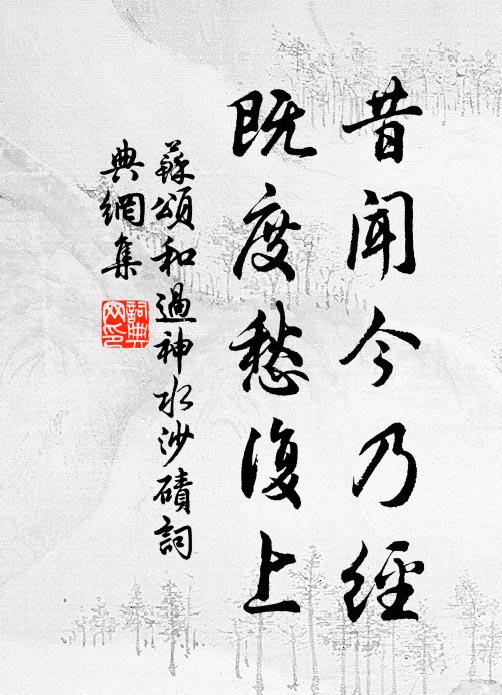 昔闻今乃經
既度愁復上
蘇頌和過神水沙磧詞
典網集
詞典網印